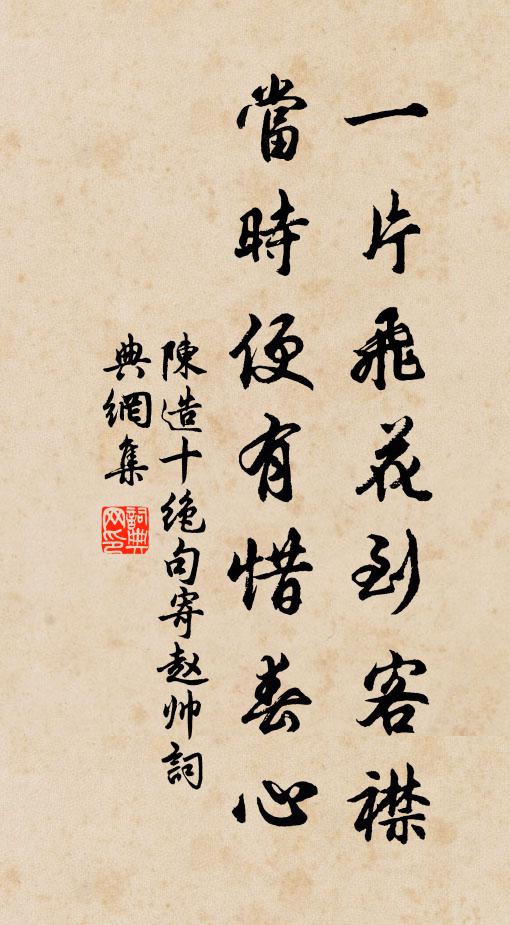 一片飛花到客襟
當時便有惜春心
陳造十絶句寄赵帅詞
典網集
詞典
网印